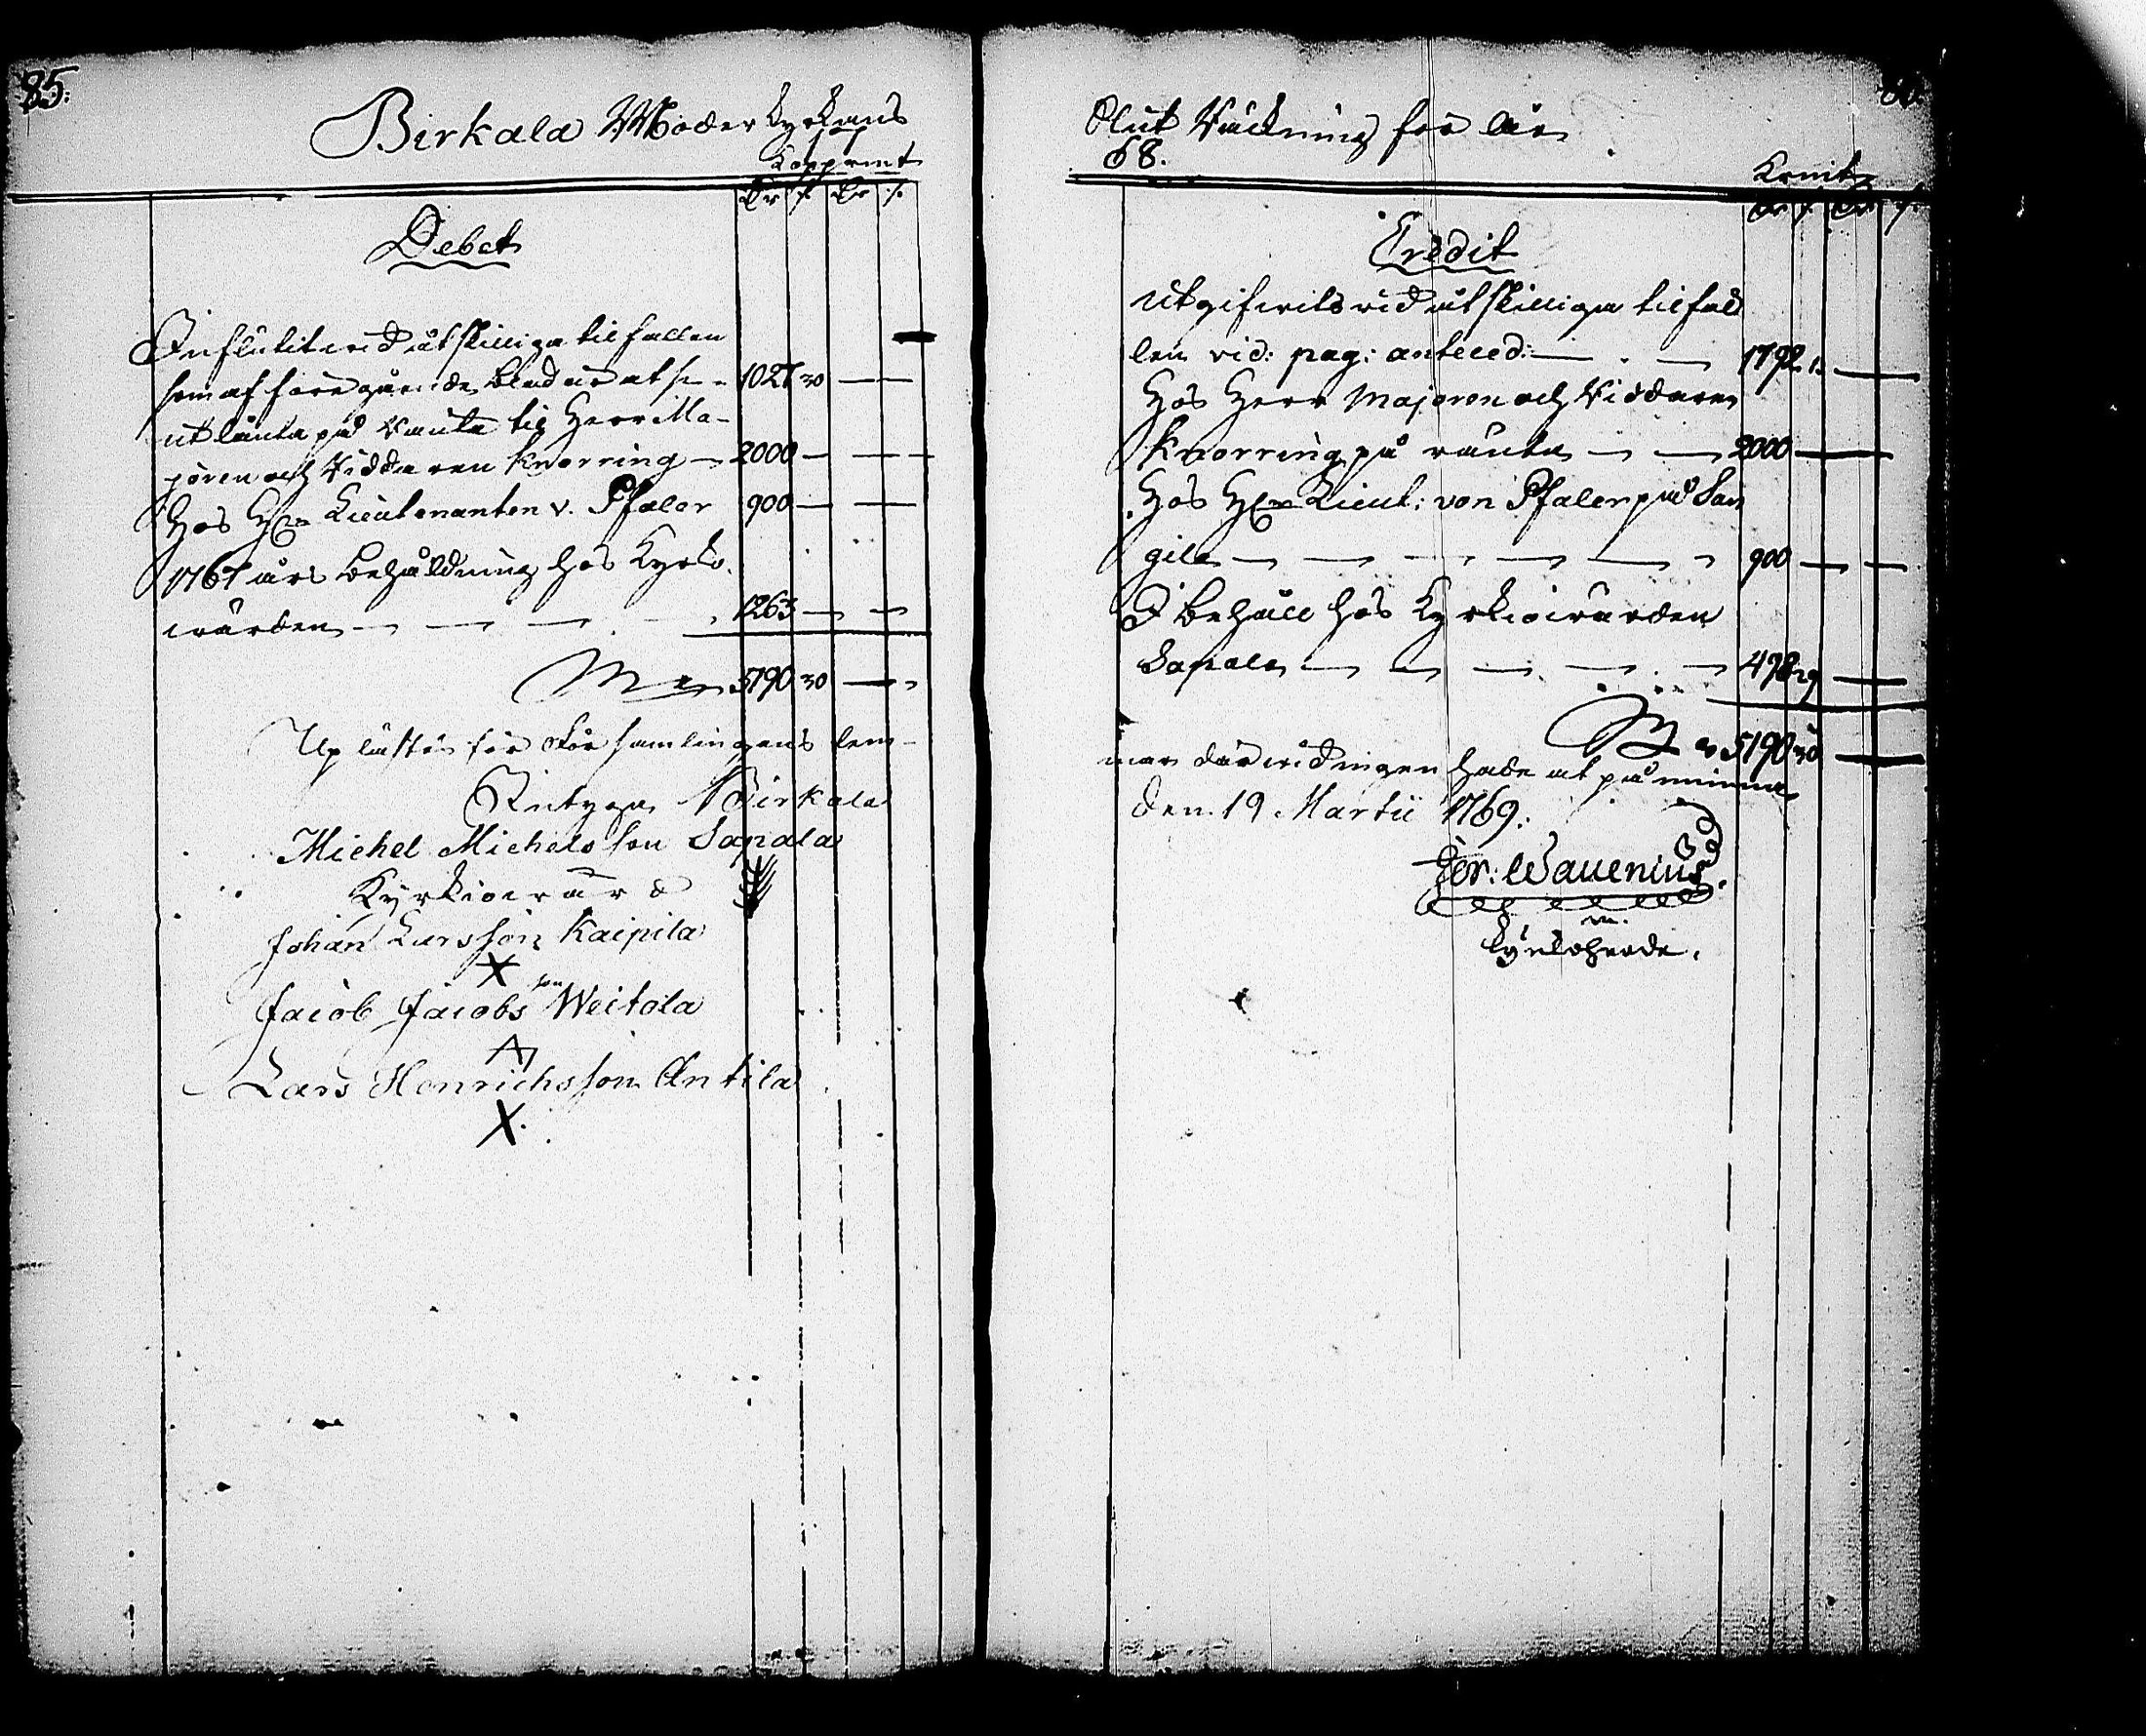 85.
Birkala Moderkyrkans
Kopparmt
Dr /: Dr /:
Debet
Influtit vid åtskilliga tilfällen
som af föregående blad är at se - 1027 30
utlånta på Ränta til Herr Ma-
joren och Riddaren Knorring - 2000
Hos H:rn Lieutenanten v. Pfaler 900
1767 års behåldning hos Kyrko-
wärden 1263
5190 30
Up lästes för Församlingens lem-
Birkala
Michel Michelsson Sapala
Kyrkiowärd
Johan Larsson Kaipila
X
Jacob Jacobsson Weitola
Lars Henrichsson Antila
X.
86.
Slut Räkning för år
68.
Krmt
Dr /: Dr /:
Credit
Utgifwits vid åtskilliga tilfäl
len vid: pag: anteced: 1792 1
Hos Herr Majoren och Riddaren
Knorring på ränta 2000
Hos H:rn Lieut: von Pfaler på San
gila 900
I behåll hos Kyrkiowärden
Sapala 498 29
5190 30
mar där wid ingen hade at påminna
den 19 Martii 1769.
Jer: Wauenius.
Kyrkoherde.